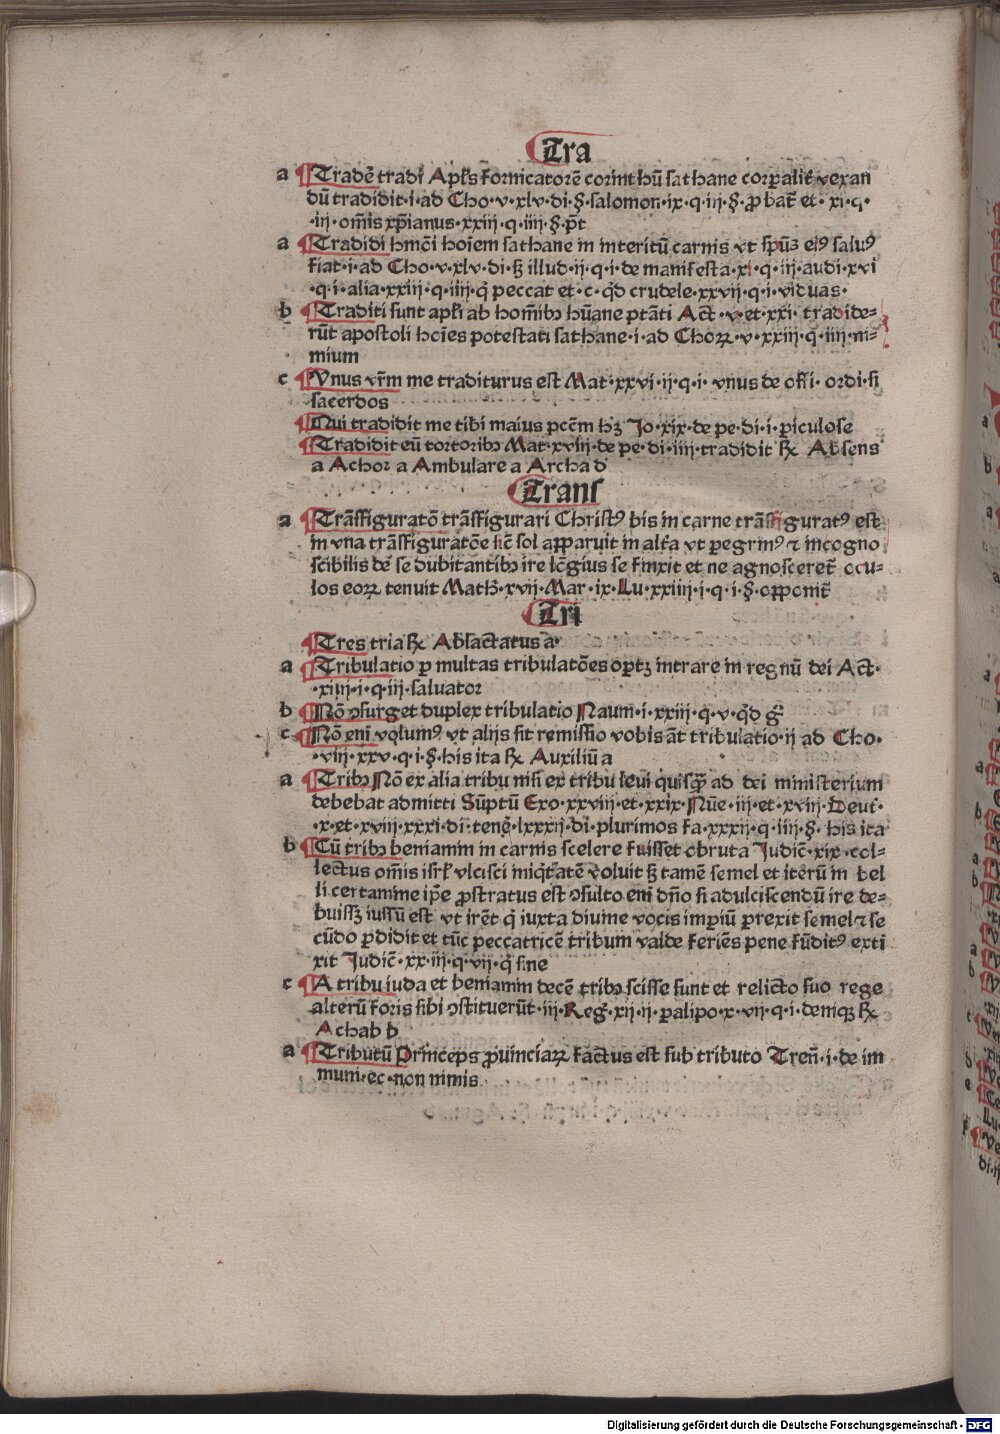 Tra
a Tradē tradi Apl's fornicatorē corinthū sathane corꝑaliť vexan
dū tradidit·i·ad Cho·v·xlv·di·§·salomon·ix·q·iii·§·ꝓbat̄ et·xi·q·
·iii·om̄is xp̄ianus·xxiii·q·iiii·§·p̄t
a Tradidi hm̄ōi hoīem sathane in interitū carnis vt spūꝫ eiꝰ saluꝰ
fiat·i·ad Cho·v·xlv·di·sꝫ illud·ii·q·i·de manifesta·xi·q·iii·audi·xvi
·q·i·alia·xxiii·q·iiii·q̄ peccat et·c·q̄d crudele·xxvii·q·i·viduas·
b Traditi sunt apl'i ab homībꝫ hūane ptāti Act̄·v·et·xxi·tradide-
rūt apostoli hoīes potestati sathane·i·ad Choꝝ·v·xxiii·q·iiii·ni-
mium
c Vnus vr̄m me traditurus est Mat·xxvi·ii·q·i·vnus de offi·ordi·si
sacerdos
Qui tradidit me tibi maius pcc̄m hꝫ Jo·xix·de pe·di·i·ꝑiculose
Tradidit eū tortoribꝫ Mat·xviii·de pe·di·iiii·tradidit ℞ Absens
a Achor a Ambulare a Archa d
Trans
a Trāsfiguratō trāsfigurari Christꝰ bis in carne trāsfiguratꝰ est
in vna trāsfiguratōe sic̄ sol apparuit in alťa vt ꝑegrinꝰ ⁊ incogno
scibilis de se dubitantibꝫ ire lōgius se finxit et ne agnosceret̄ ocu-
los eoꝝ tenuit Math·xvii·Mar·ix·Lu·xxiiii·i·q·i·§·opponit̄
Tri
Tres tria ℞ Ablactatus a
a Tribulatio ꝑ multas tribulatōes oꝑtꝫ intrare in regnū dei Act̄·
·xiiii·i·q·iii·saluator
b Nō ↄsurget duplex tribulatio Naum·i·xxiii·q·v·q̄d ḡ
c Nō eni volumꝰ vt aliis sit remissio vobis āt tribulatio·ii ad Cho·
·viii·xxv·q·i·§·his ita ℞ Auxiliū a
a Tribꝫ Nō ex alia tribu nisi ex tribu leui quisq̄ ad dei ministerium
debebat admitti Sūptū Exo·xxviii·et·xxix·Nūe·iii·et·xviii·Deut̄·
·x·et·xviii·xxxi·di·tenē·lxxxii·di·plurimos fa·xxxii·q·iiii·§·his ita
b Cū tribꝫ beniamin in carnis scelere fuisset obruta Judic̄·xix·col-
lectus om̄is isr'l vlcisci iniq̄tatē voluit sꝫ tamē semel et iterū in bel
li certamine ip̄e ꝓstratus est ↄsulto eni dn̄o si adulciscendū ire de-
buissꝫ iussū est vt irēt q̄ iuxta diuine vocis imꝑiū ꝑrexit semel ⁊ se
cūdo ꝑdidit et tūc peccatricē tribum valde feriēs pene fūditꝰ exti
xit Judic̄·xx·iii·q·vii·q̄ sine
c A tribu iuda et beniamin decē tribꝫ scisse sunt et relicto suo rege
alterū foris sibi ↄstituerūt·iii·Reḡ·xii·ii·ꝑalipo·x·vii·q·i·deniqꝫ ℞
Achab b
a Tributū Princeps ꝓuinciaꝝ factus est sub tributo Tren̄·i·de im
muni·ec·non nimis
Digitalisierung gefördert durch die Deutsche Forschungsgemeinschaft - DFG